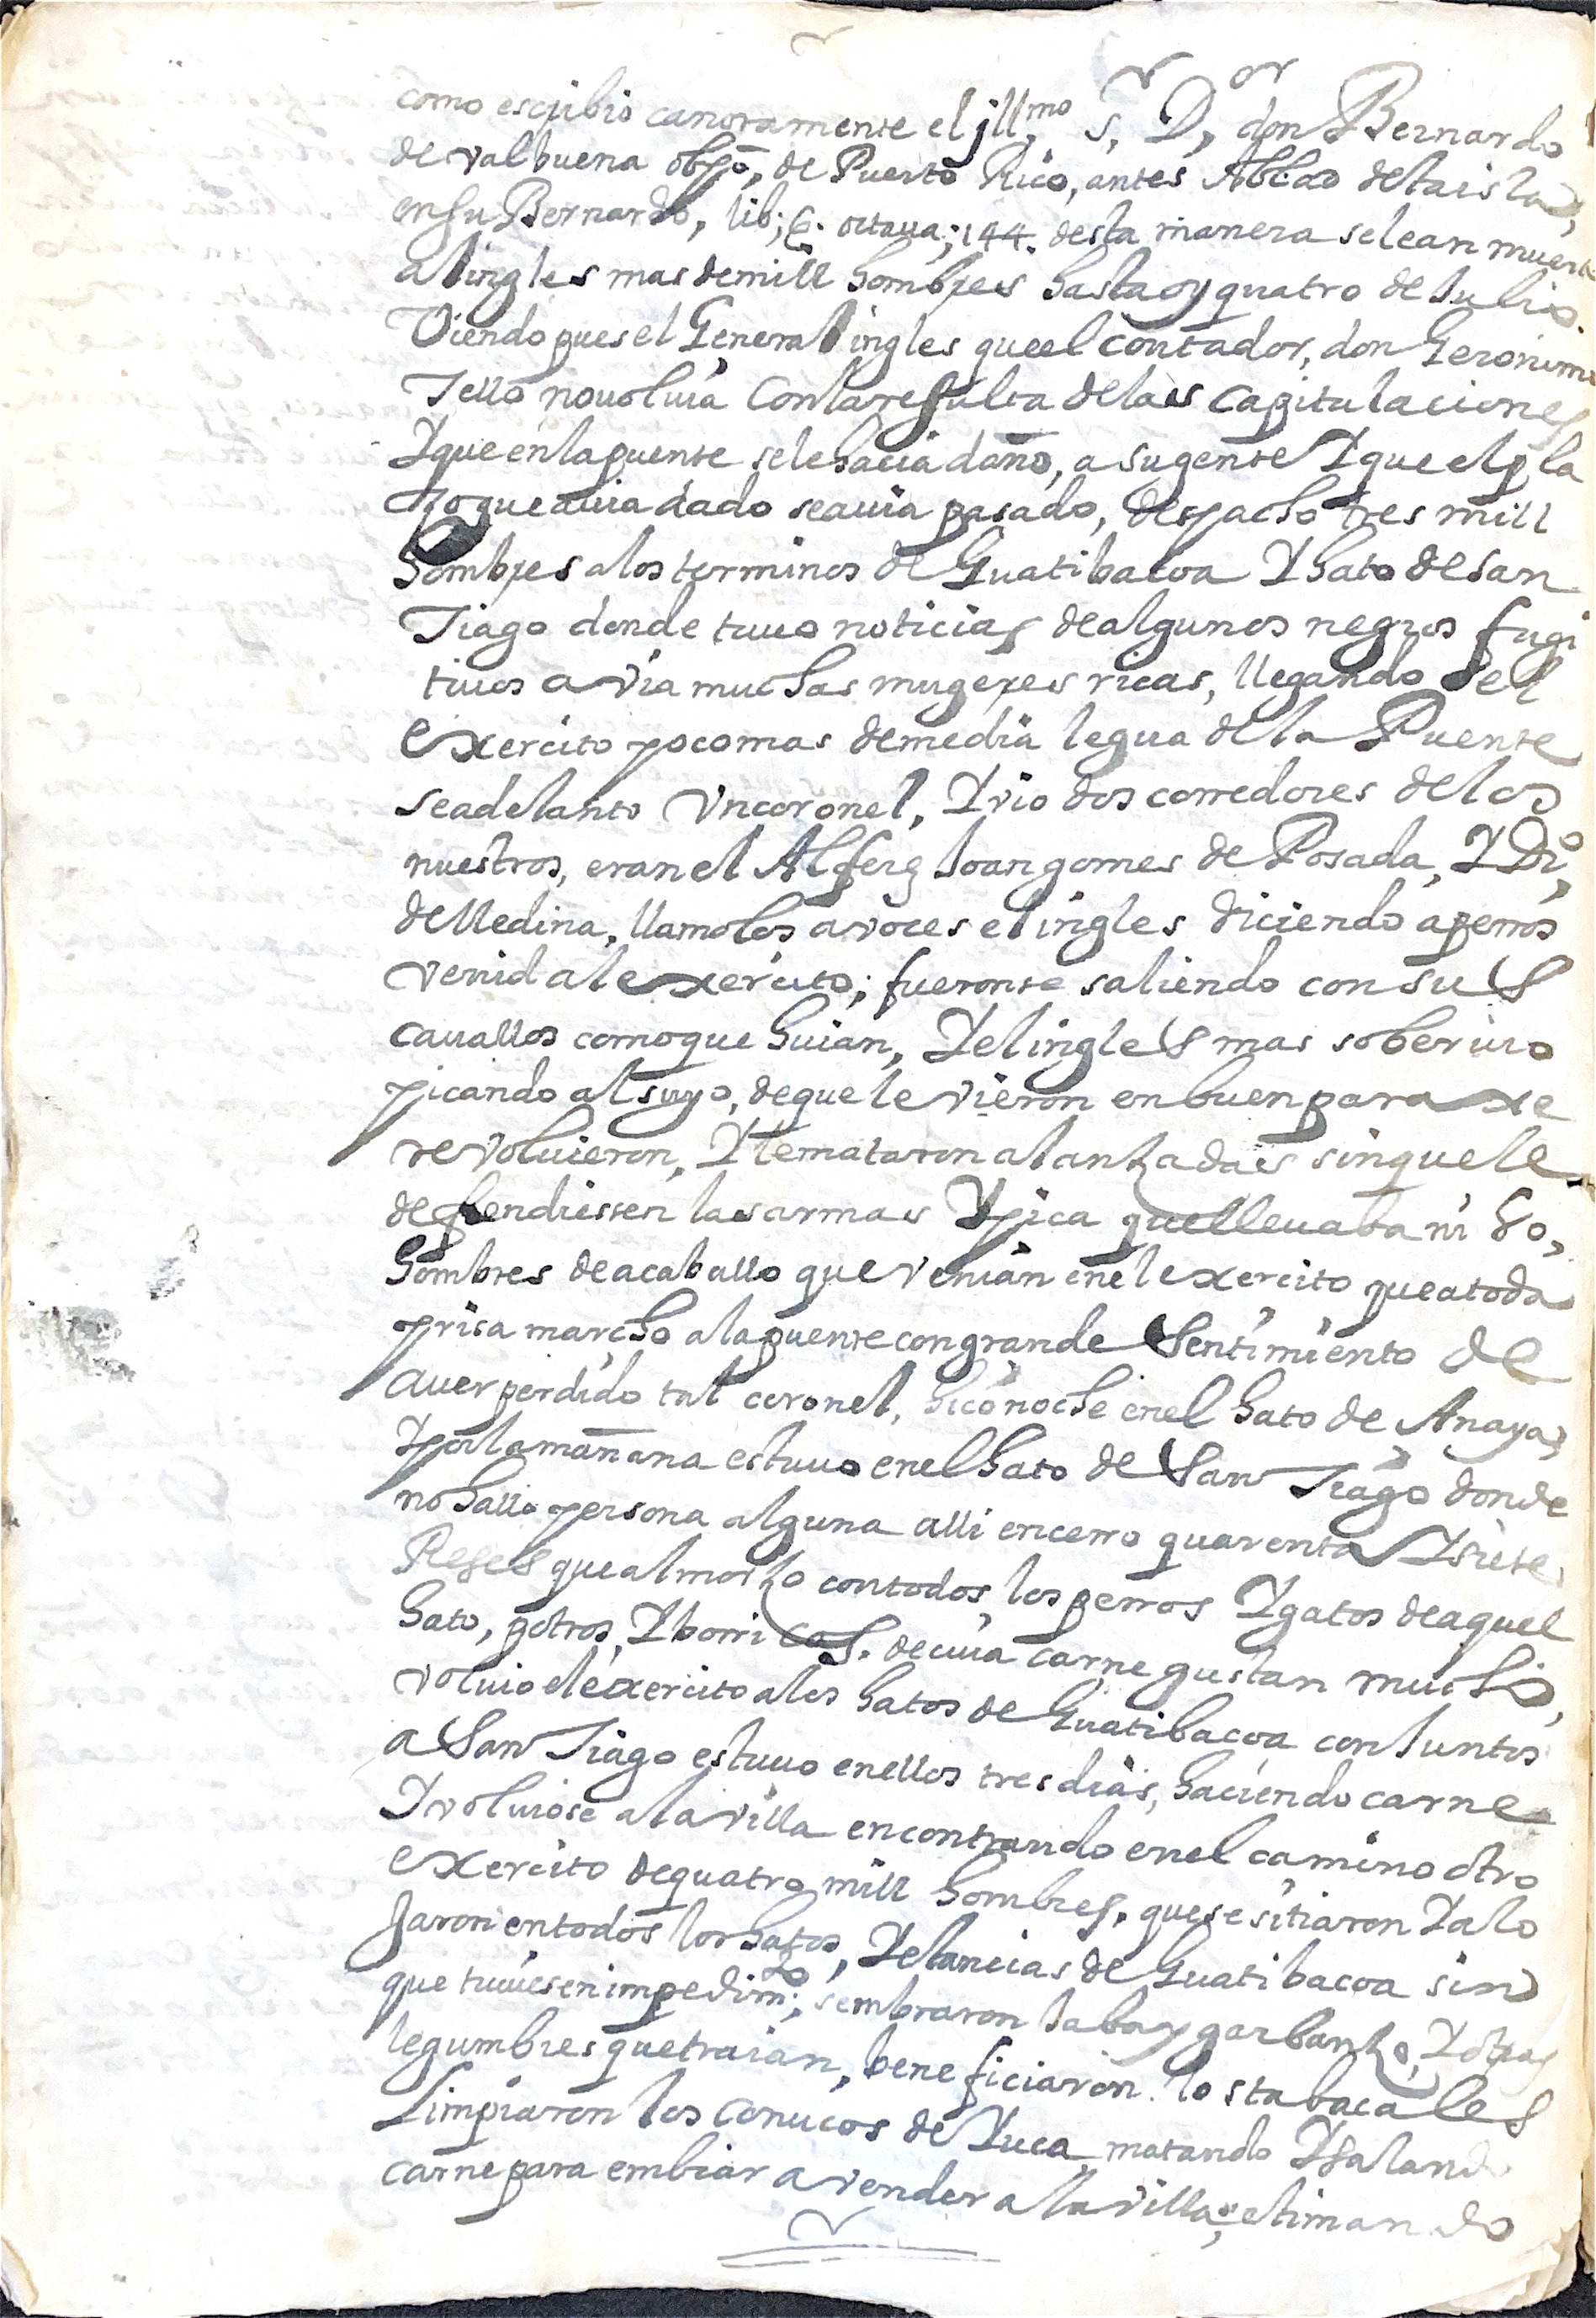 como escribio canoramente el jll.mo S.r D.or don Bernardo
de valbuena obpo, de Puerto Rico, antes Abbad desta isla,
en su Bernardo, lib; 6. octaua; 144. desta manera se lean muerto
al ingles mas de mill hombres hasta oy quatro de Julio.
Viendo pues el General ingles que el contador, don Geronimo
Tello no uoluia con la resulta de las capitulaciones
Y que en la puente se le hacia daño, a su gente Y que el pla
zo que auia dado se auia pasado, despacho tres mill
hombres a los terminos de Guatibacoa Y hato de san
Tiago donde tuuo noticias de algunos negros fugi
tiuos a via muchas mugeres ricas, llegando el
exercito poco mas de media legua de la Puente
se adelanto vn coronel, Y vio dos corredores de los
nuestros, eran el Alferez Joan gomes de Posada, Y Di.o
de Medina, llamolos a voces el ingles diciendo a perros
venid al exercito; fueronse saliendo con sus
cauallos como que huian, Y el ingles mas soberuio
picando al suyo, de que le vieron en buen paraxe
revoluieron, Y le mataron a lanzadas sin que le
defendiessen las armas Y pica que lleuaba ni 80,
hombres de a caballo que venian en el exercito que a toda
prisa marcho a la puente con grande sentimiento de
auer perdido tal coronel, hico noche en el hato de Anaya,
Y por la mañana estuuo en el hato de San Tiago donde
no hallo persona alguna alli encerro quarenta Y siete
Reses que almorzo con todos los perros Y gatos de aquel
hato, potros, Y borricos. de cuia carne gustan mucho,
voluio el exercito a los hatos de Guatibacoa conJuntos
a San Tiago estuuo en ellos tres dias, haciendo carne
Y voluiose a la villa encontrando en el camino otro
exercito de quatro mill hombres, que se sitiaron Y alo
Jaron en todos los hatos, Y estancias de Guatibacoa sin
que tuuiesen impedim.to; sembraron haba y garbanzo, Y otras
legumbres que traian, beneficiaron los tabacales
Limpiaron los conucos de Yuca matando Y salando
carne para embiar a vender a la villa; estimando